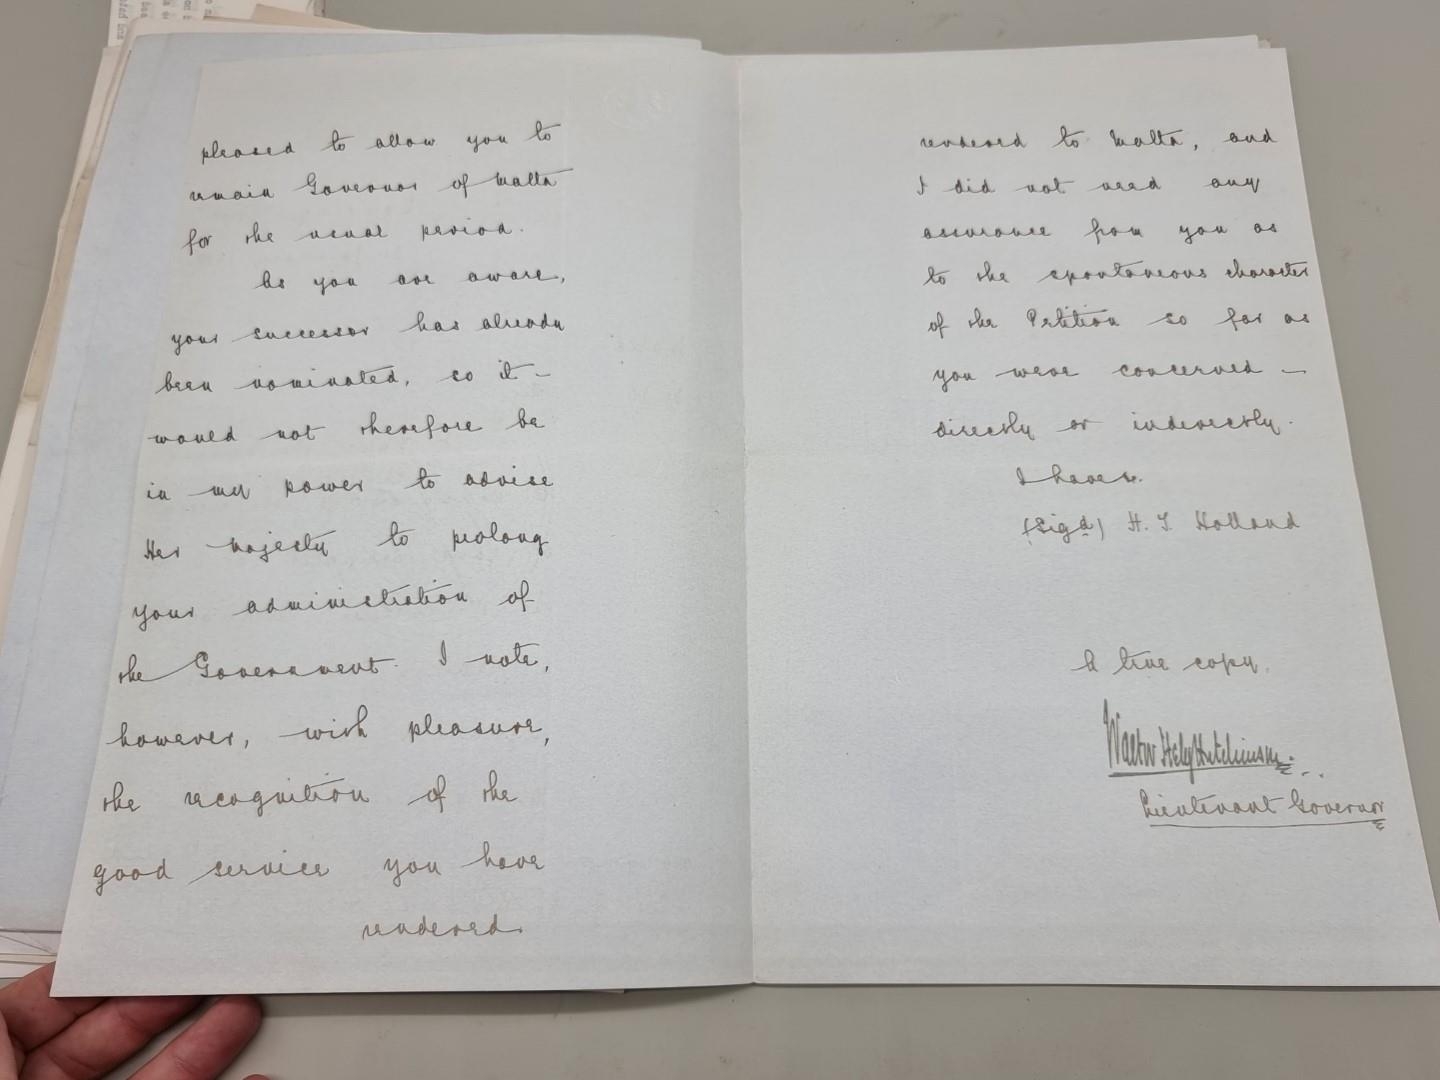 pleased to allow you to
remain Governor of Malta
for the usual period.
As you are aware,
your successor has already
been nominated, so it
would not therefore be
in my power to advise
Her Majesty to prolong
your administration of
the Government. I note,
however, with pleasure,
the recognition of the
good service you have
rendered
rendered to Malta, and
I did not need any
assurance from you as
to the spontaneous character
of the Petition so far as
you were concerned –
directly or indirectly.
I have
(Sigd) H. T. Holland
A true copy.
Walter Hely Hutchinson
Lieutenant Governor